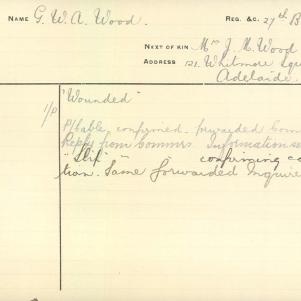 NAME G. W. A. Wood. REG. &C. 27th B
NEXT OF KIN Mrs J. M. Wood
ADDRESS 121. Whitmore Squ
Adelaide.
"Wounded"
1/P confirmed. forwarded Com
Reply from Commrs. Information se
"Slip" confirming ca
tion. Same forwarded Inquire